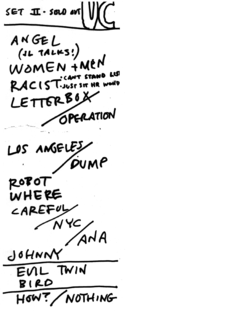 SET II - SOLD OUT
UC
ANGEL
(JL TALKS!)
WOMEN + MEN
RACIST - CAN'T STAND
- JUST SIT HR
LETTERBOX /
OPERATION
LOS ANGELES /
DUMP
ROBOT
WHERE
CAREFUL /
NYC /
ANA
JOHNNY
EVIL TWIN
BIRD
HOW? / NOTHING